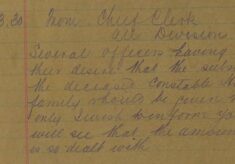 3.20 From Chief Clerk
All Division
Several officers having
their desire that the
the deceased Constable
family should be
only I wish to inform you
will see that the amount
is so dealt with